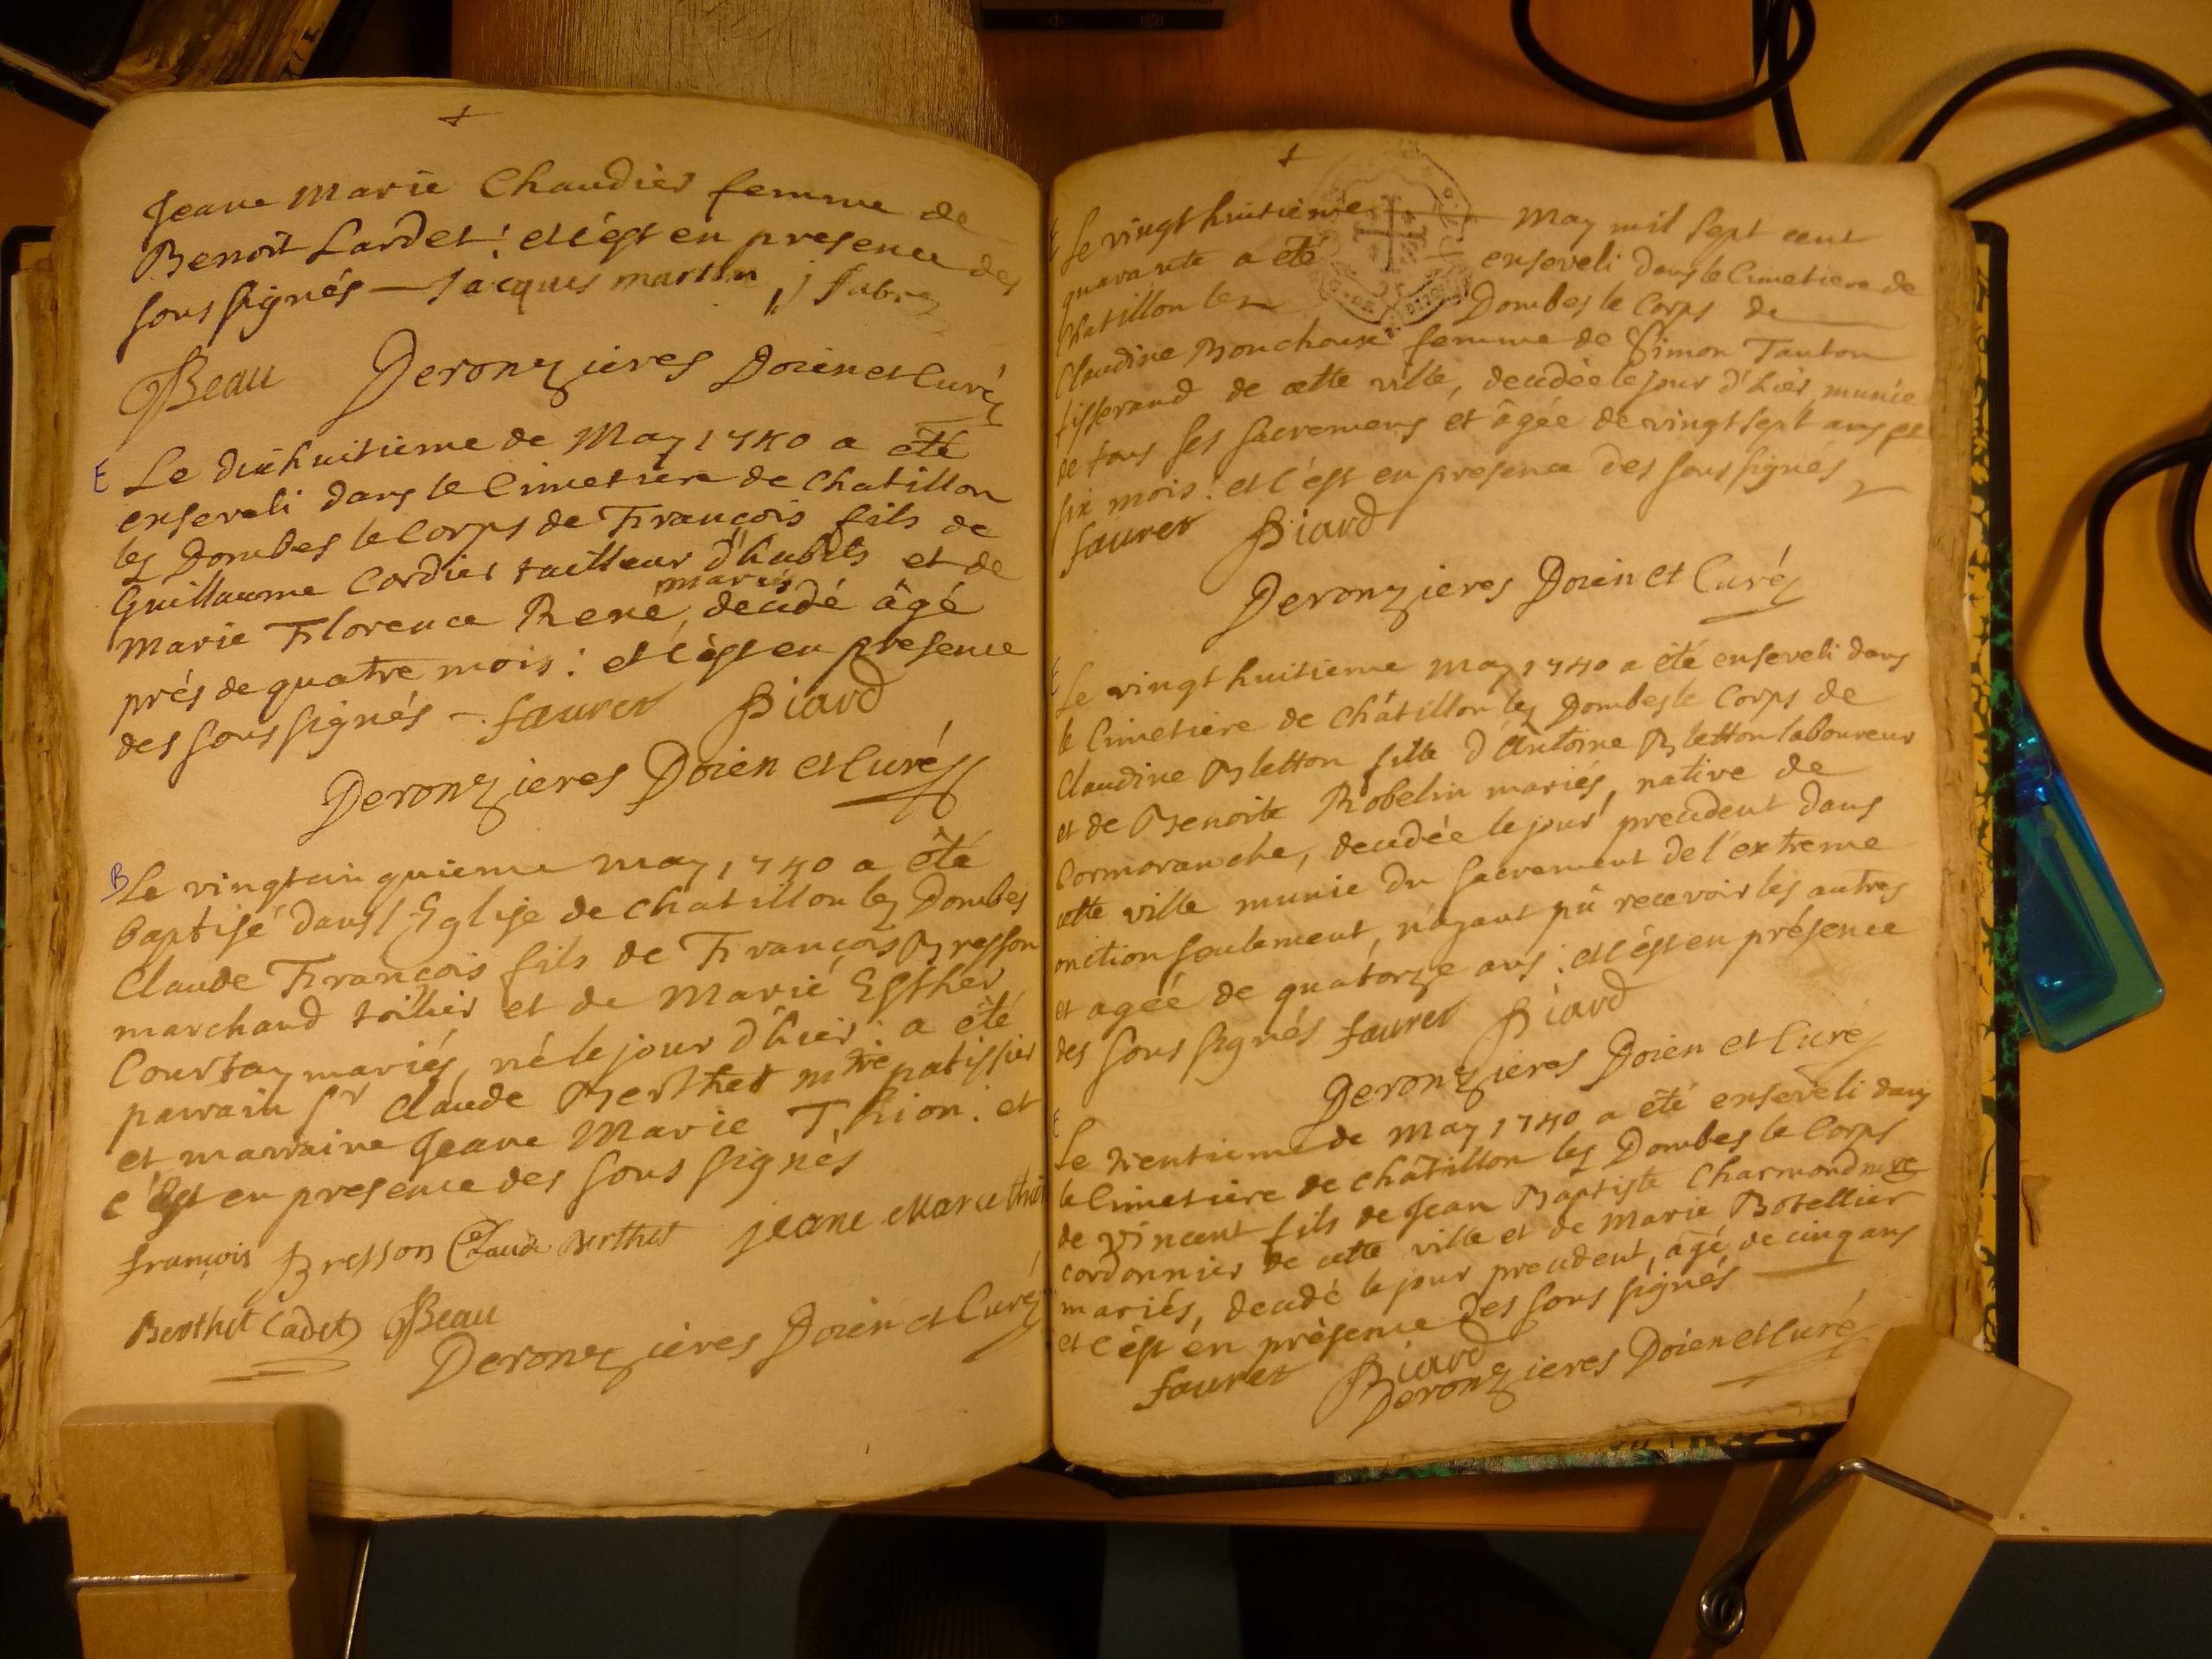 Jeane Marie Chaudier femme de
Benoit Lardet : et c'est en presence des
sous signés — Jacques martin j fabre
Beau Deronzieres Doien et Curé
E Le dixhuitieme de May 1740 a êté
enseveli dans le Cimetiere de Chatillon
lez Dombes le Corps de François fils de
Guillaume Cordier tailleur d'habits et de
mariés
Marie Florence René, decédé âgé
prés de quatre mois : et c'est en presence
des sous signés — faurer Biard
Deronzieres Doien et Curé
B Le vingtcinquieme may 1740 a êté
baptisé dans l'Eglise de chatillon lez Dombes
Claude François fils de François Bresson
marchand toillier et de Marie Esther
Courtay mariés, né le jour d'hier : a êté
parrain Sr Claude Berthet mtre patissier
et marraine Jeane Marie Thion : et
c'est en presence des sous signés
françois Bresson Claude Berthet jeane Marie thion
Berthet Cadet Beau
Deronzieres Doien et Curé
E Le vingt huitieme May mil sept cent
quarante a êté enseveli dans le Cimetiere de
Chatillon lez Dombes le Corps de
Claudine Bonchoux femme de Simon Tanton
tisserand de cette ville, decedée le jour d'hier, munie
de tous ses sacremens et âgée de vingt sept ans et
six mois : et c'est en presence des sous signés
faurer Biard
Deronzieres Doien et Curé
E Le vingt huitieme May 1740 a êté enseveli dans
le Cimetiere de Châtillon lez Dombes le Corps de
Claudine Bletton fille d'Antoine Bletton laboureur
et de Benoite Robelin mariés, native de
Cormoranche, decedée le jour precedent dans
cette ville munie du sacrement de l'extreme
onction seulement, n'ayant pû recevoir les autres
et agée de quatorze ans : et c'est en présence
des sous signés faurer Biard
Deronzieres Doien et Curé
E Le trentieme de May 1740 a êté enseveli dans
le Cimetiere de châtillon lez Dombes le Corps
de Vincent fils de Jean Baptiste Charmond mtre
cordonnier de cette ville et de Marie Botellier
mariés, decedé le jour precedent, âgé de cinq ans
et c'est en présence des sous signés
faurer Biard
Deronzieres Doien et Curé